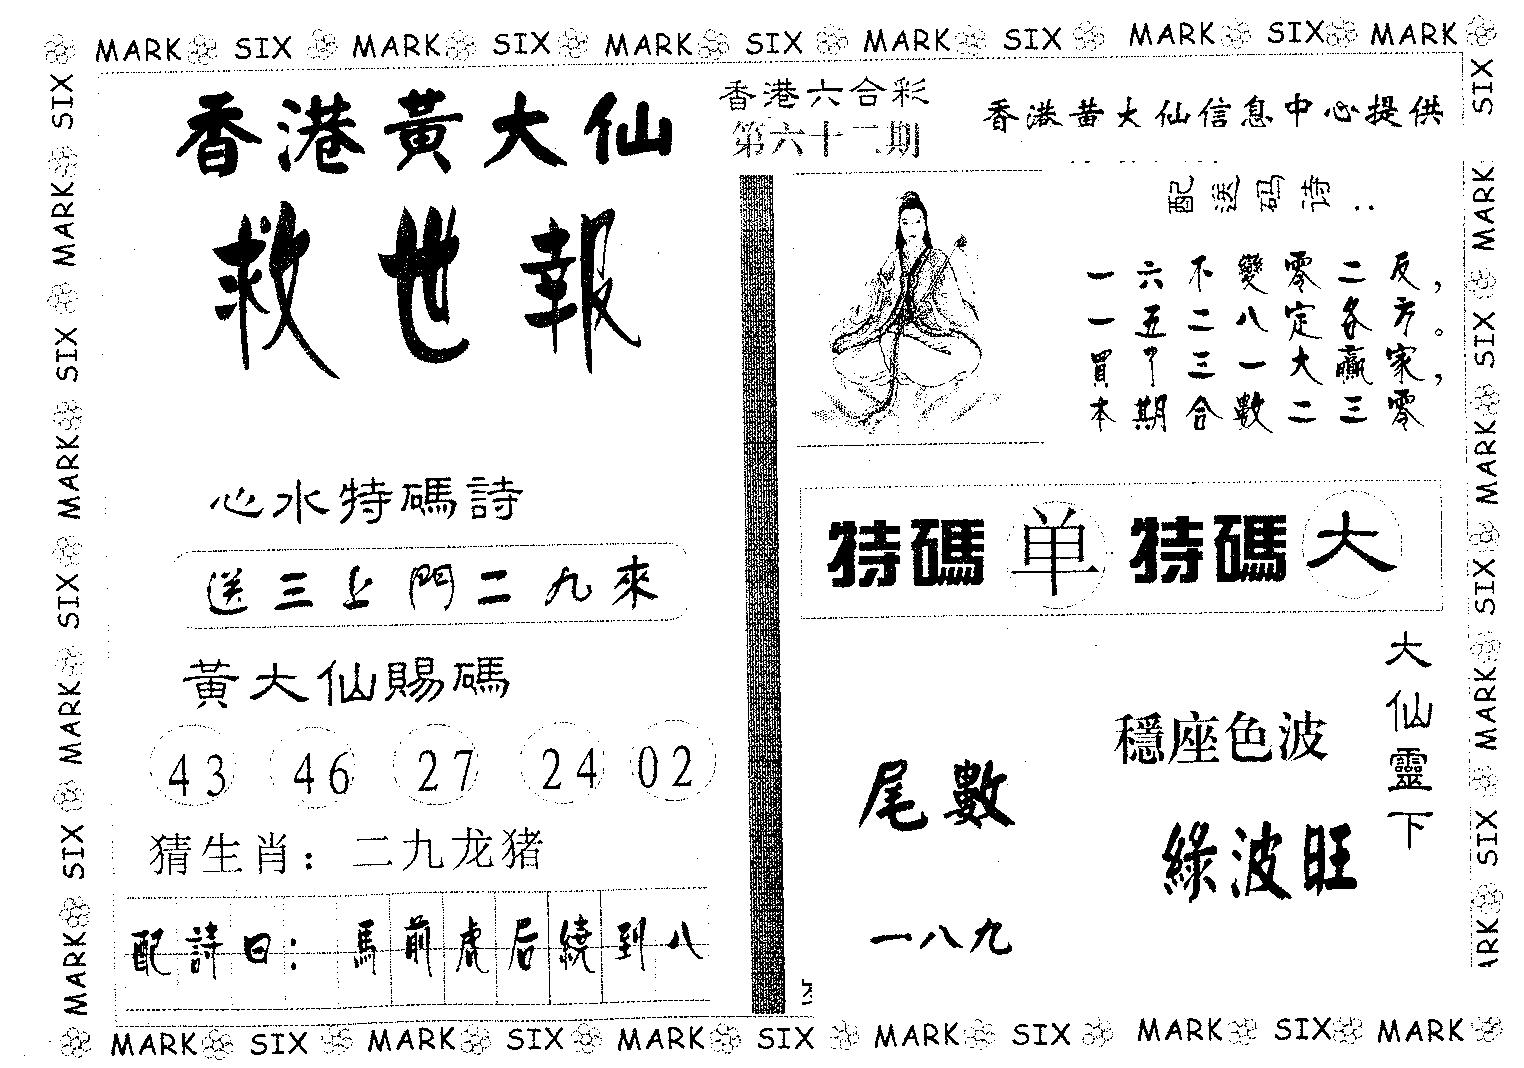 MARK SIX MARK SIX MARK SIX MARK SIX MARK SIX MARK
SIX MARK SIX MARK SIX MARK SIX MARK
香港黃大仙
救世報
心水特碼詩
送三上門二九來
黃大仙賜碼
43 46 27 24 02
猜生肖：二九龙猪
配詩曰：馬前虎后繞到八
香港六合彩
第六十二期
香港黃大仙信息中心提供
配送码诗：
一六不變零二反，
一五二八定各方。
買了三一大贏家，
本期合數二三零
特碼单 特碼大
大仙靈下
穩座色波
綠波旺
尾數
一八九
SIX MARK SIX MARK SIX MARK SIX ARK
MARK SIX MARK SIX MARK SIX MARK SIX MARK SIX MARK